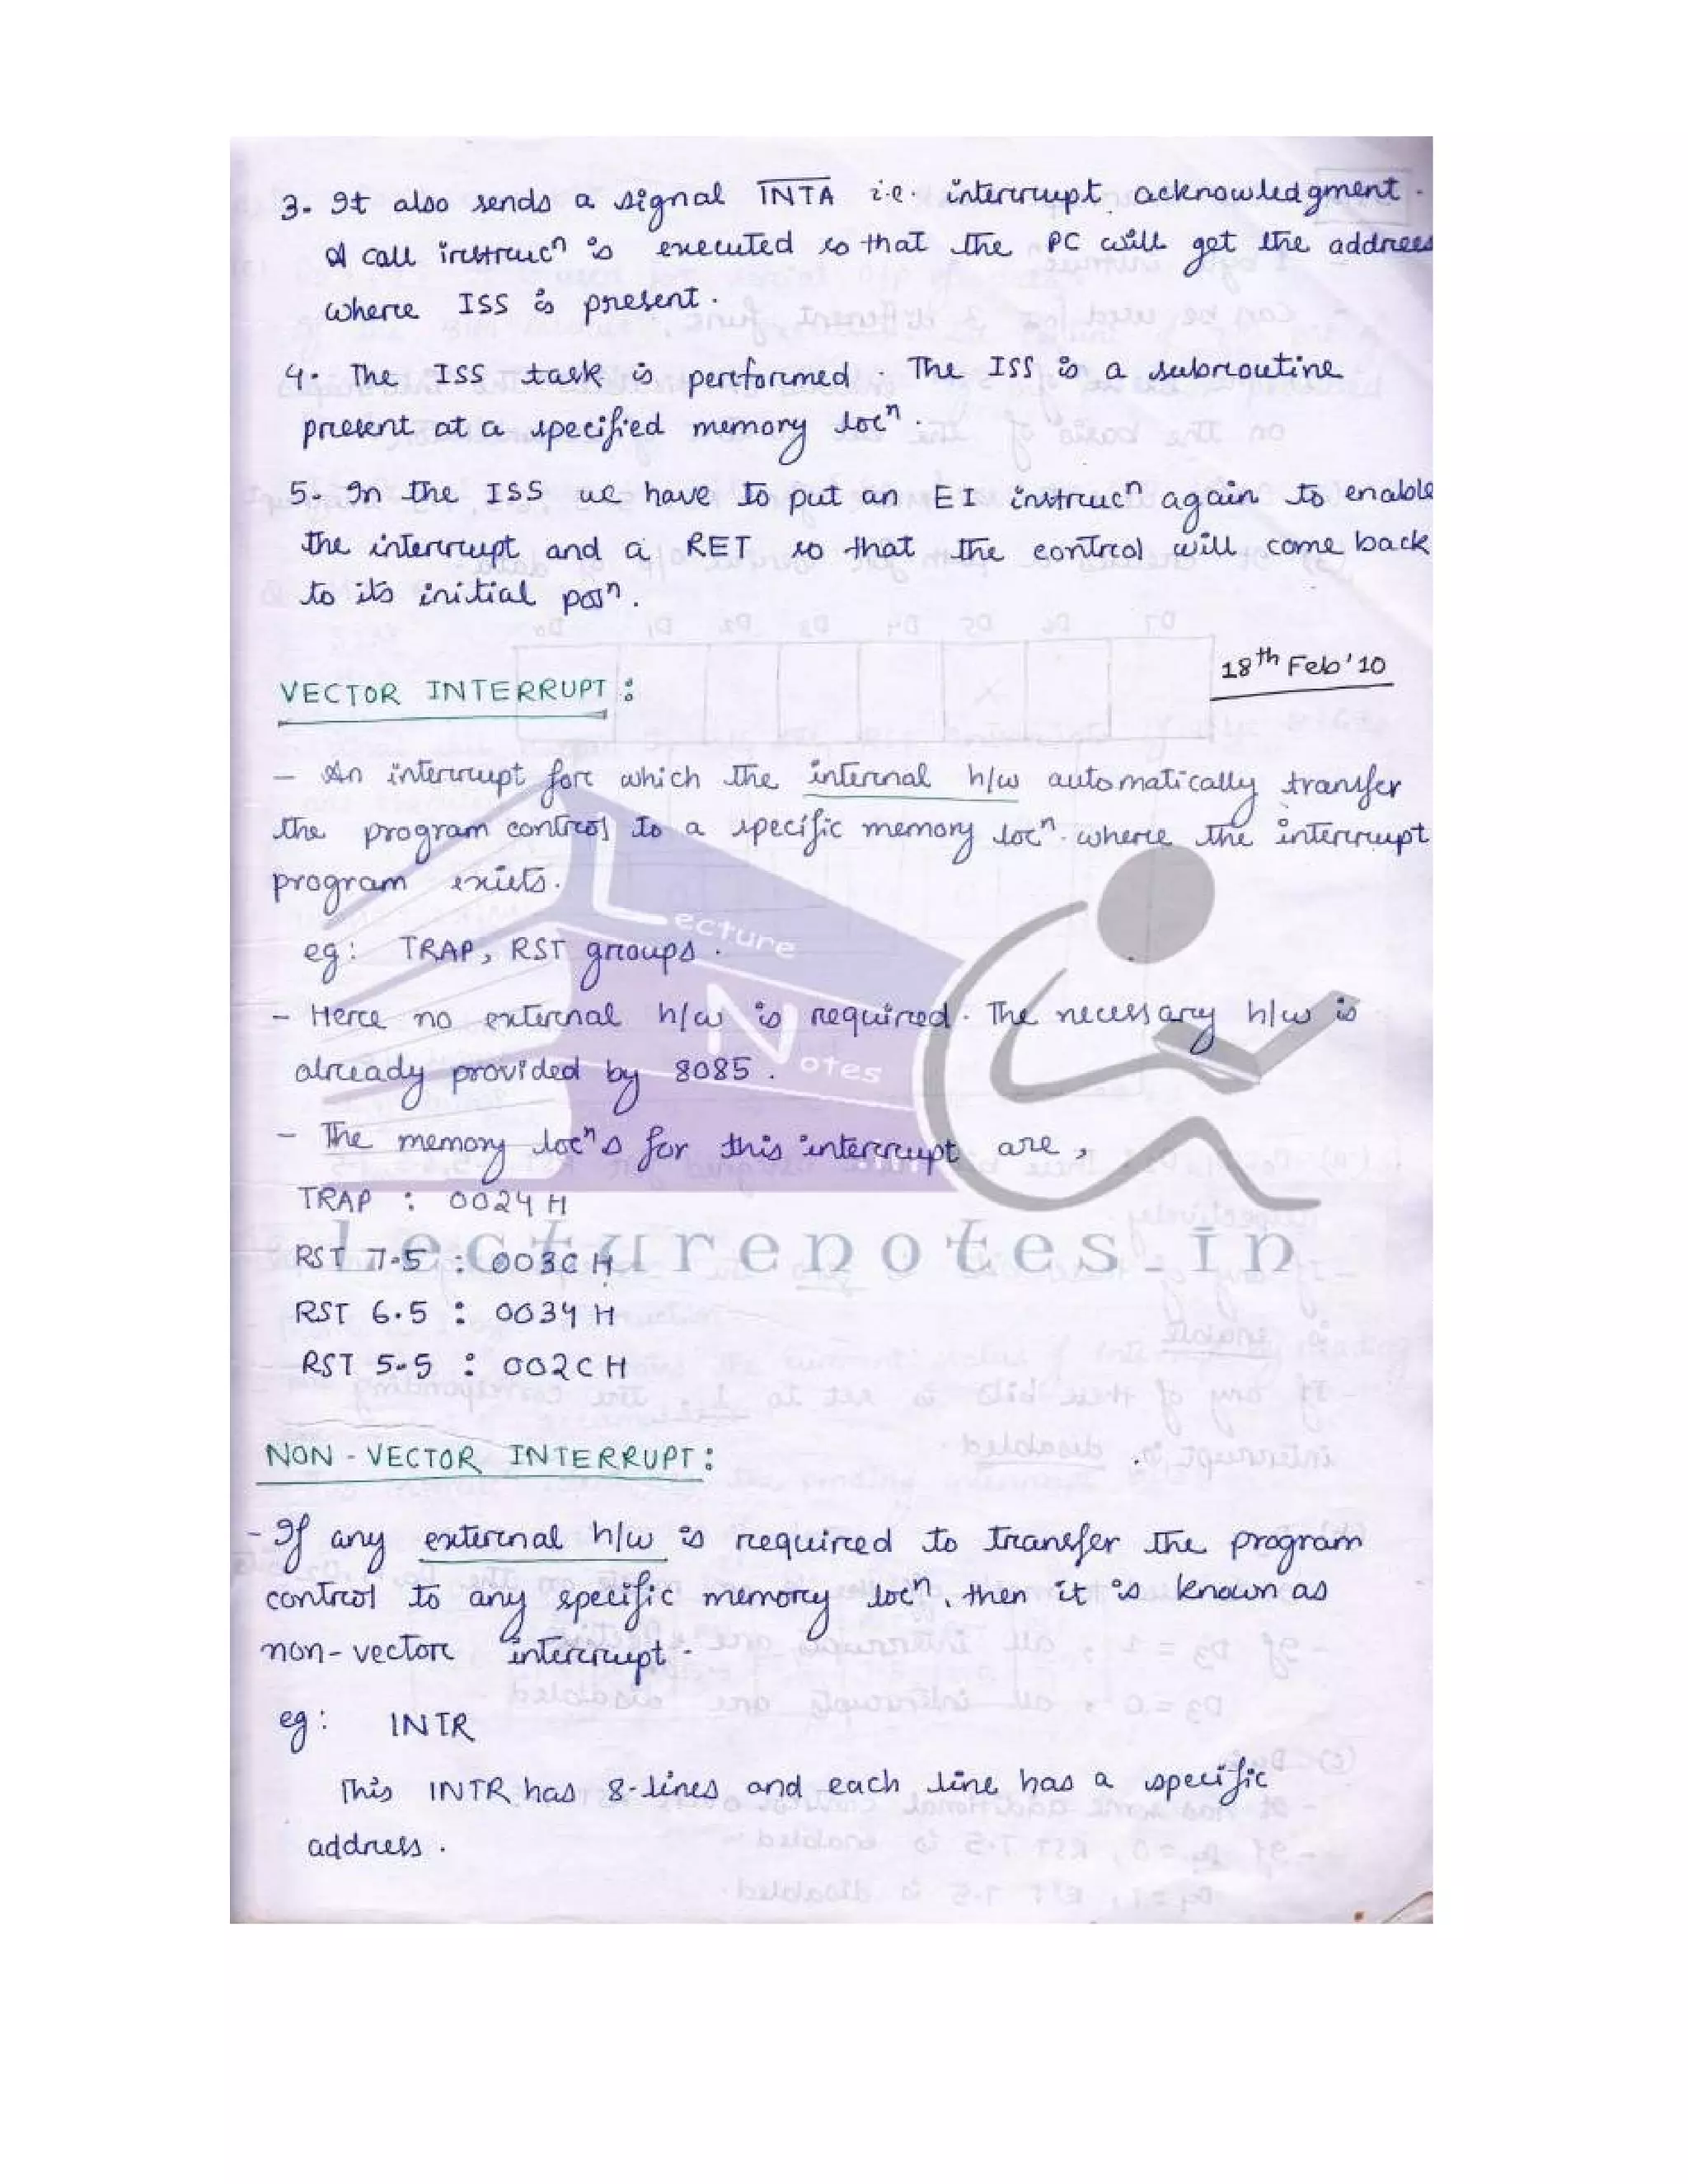 3. It also sends a signal INTA i.e. interrupt acknowledgment.
A call instrucn is executed so that the PC will get the address
where ISS is present.
4. The ISS task is performed. The ISS is a subroutine
present at a specified memory locn.
5. In the ISS we have to put an EI instrucn again to enable
the interrupt and a RET so that the control will come back
to its initial posn.
18th Feb'10
VECTOR INTERRUPT :
- An interrupt for which the internal h/w automatically transfer
the program control to a specific memory locn. where the interrupt
program exists.
eg: TRAP, RST groups.
- Here no external h/w is required. The necessary h/w is
already provided by 8085.
- The memory locn s for this interrupt are,
TRAP : 0024 H
RST 7.5 : 003C H
RST 6.5 : 0034 H
RST 5.5 : 002C H
NON - VECTOR INTERRUPT :
- If any external h/w is required to transfer the program
control to any specific memory locn, then it is known as
non-vector interrupt.
eg: INTR
This INTR has 8-lines and each line has a specific
address.
Lecture
Notes
.in
Lecturenotes.in